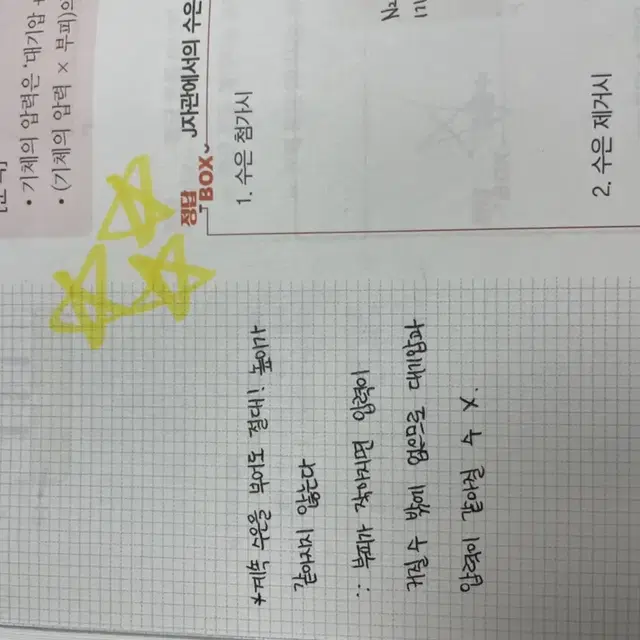 • 기체의 압력은 '대기압 +
• (기체의 압력 × 부피)의
정답
BOX
J자관에서의 수은
1. 수은 첨가시
N₂
1기
2. 수은 제거시
*계속 수은을 부어도 절대! 높이가
같아지지 않는다
∴ 부피가 작아지면 압력이
커질 수 밖에 없으므로 대기압과
압력이 같아질 수 X.